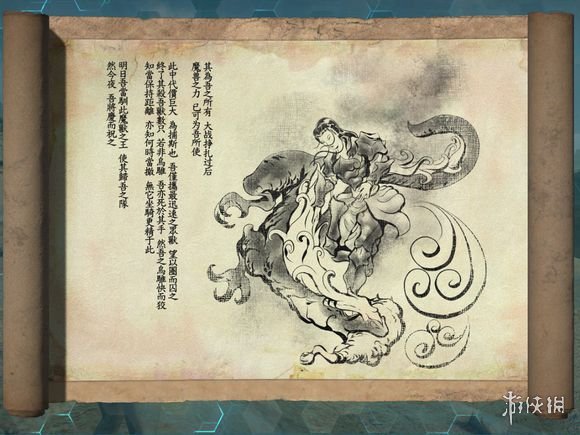 其為吾之所有 大战挣扎过后
魔兽之力 已可为吾所使
此中代價巨大 為捕斯也 吾僅攜最迅速之眾獸 望以圍而囚之
終了其殺吾獸數只 若非烏騅 吾亦死於其手 然吾之烏騅快而狡
知當保持距離 亦知何時當撤 無它坐騎更精于此
明日吾當馴此魔獸之王 使其歸吾之隊
然今夜 吾將慶而祝之
游侠網